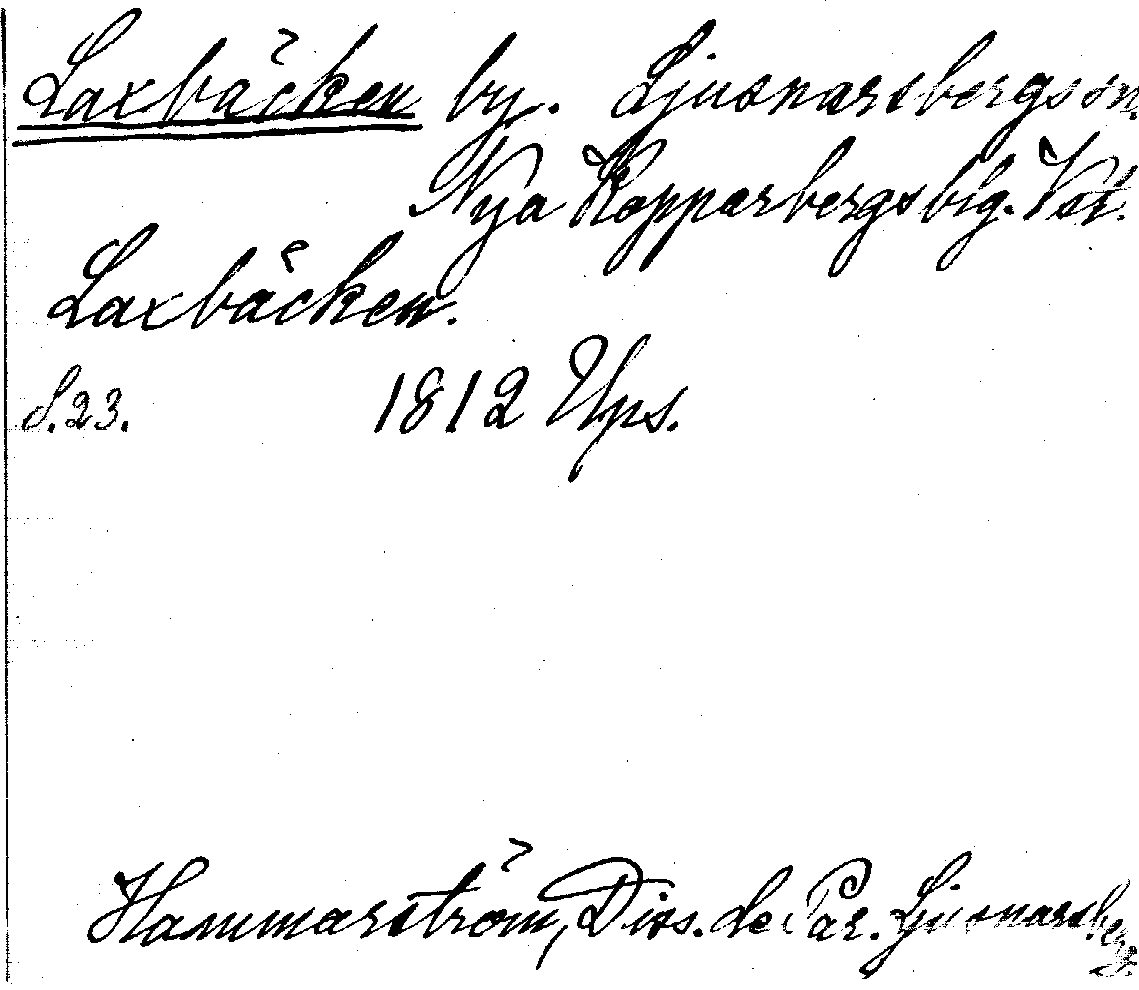 Laxbäcken by. Ljusnarsbergs sn.
Nya Kopparbergs blg. Vst.
Laxbäcken.
S. 23. 1812 Ups.
Hammarström, Diss. de Par. Ljusnarsberg.